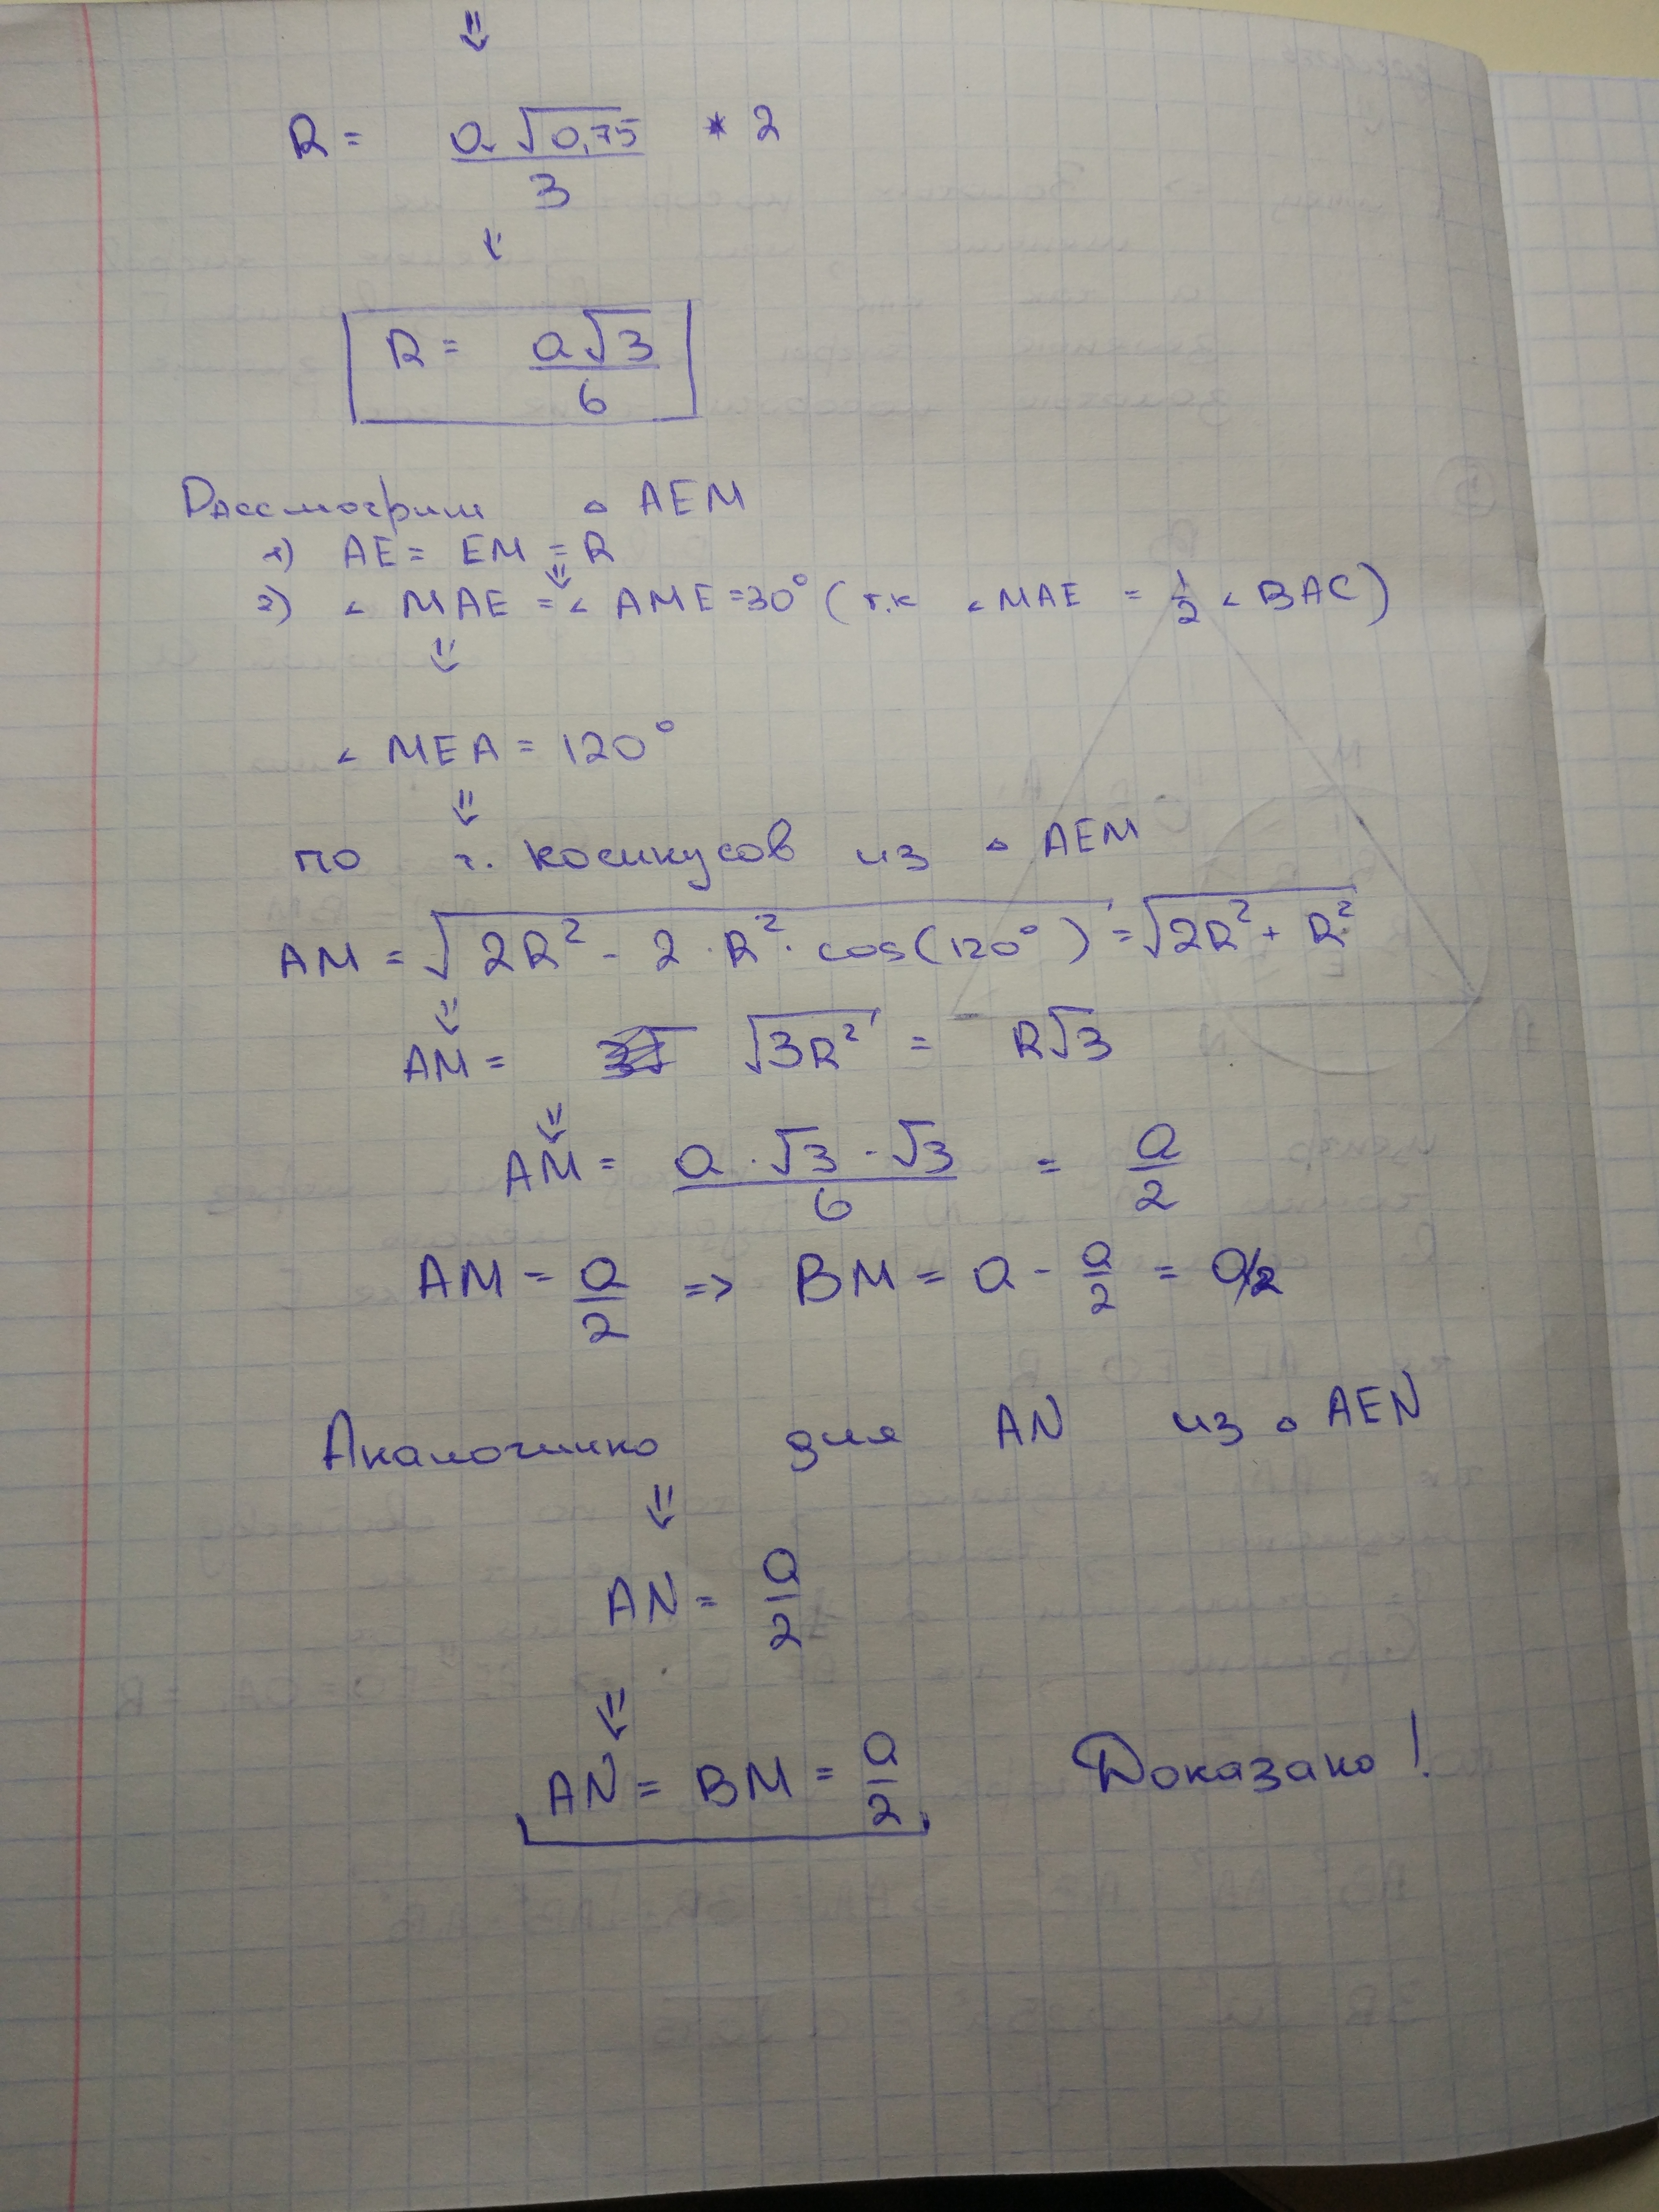 ⇓
R = a√0,75 / 3 * 2
⇓
R = a√3 / 6
Рассмотрим △ AEM
1) AE = EM = R
⇓
2) ∠ MAE = ∠ AME = 30° ( т.к ∠ MAE = 1/2 ∠ BAC )
⇓
∠ MEA = 120°
⇓
по т. косинусов из △ AEM
AM = √(2R² - 2 · R² · cos(120°)) = √(2R² + R²)
⇓
AM = √(3R²) = R√3
⇓
AM = a · √3 · √3 / 6 = a/2
AM = a/2 => BM = a - a/2 = a/2
Аналогично для AN из △ AEN
⇓
AN = a/2
⇓
AN = BM = a/2 Доказано !